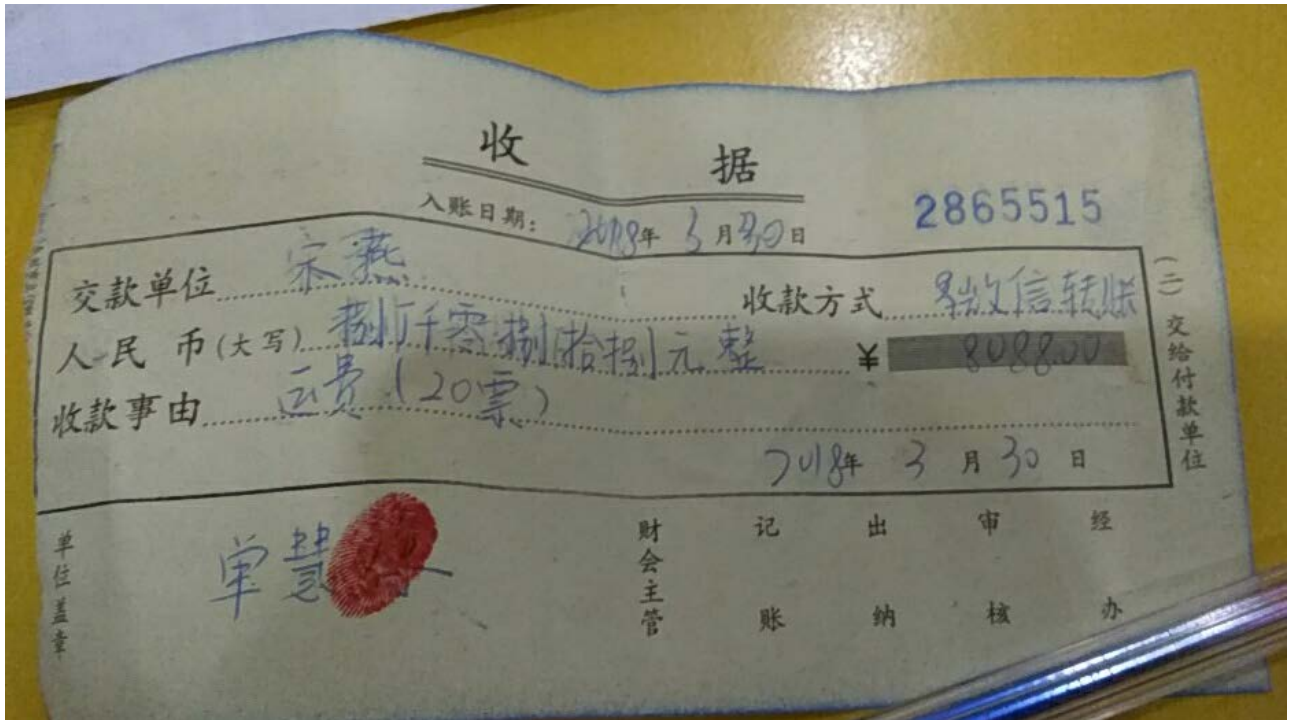 收据
入账日期: 2018年3月30日
2865515
交款单位 宋燕 收款方式 微信转账
人民币(大写) 捌仟零捌拾捌元整 ¥ 8088.00
收款事由 运费(20票)
2018年3月30日
(二)交给付款单位
单位盖章 单慧
财会主管 记账 出纳 审核 经办